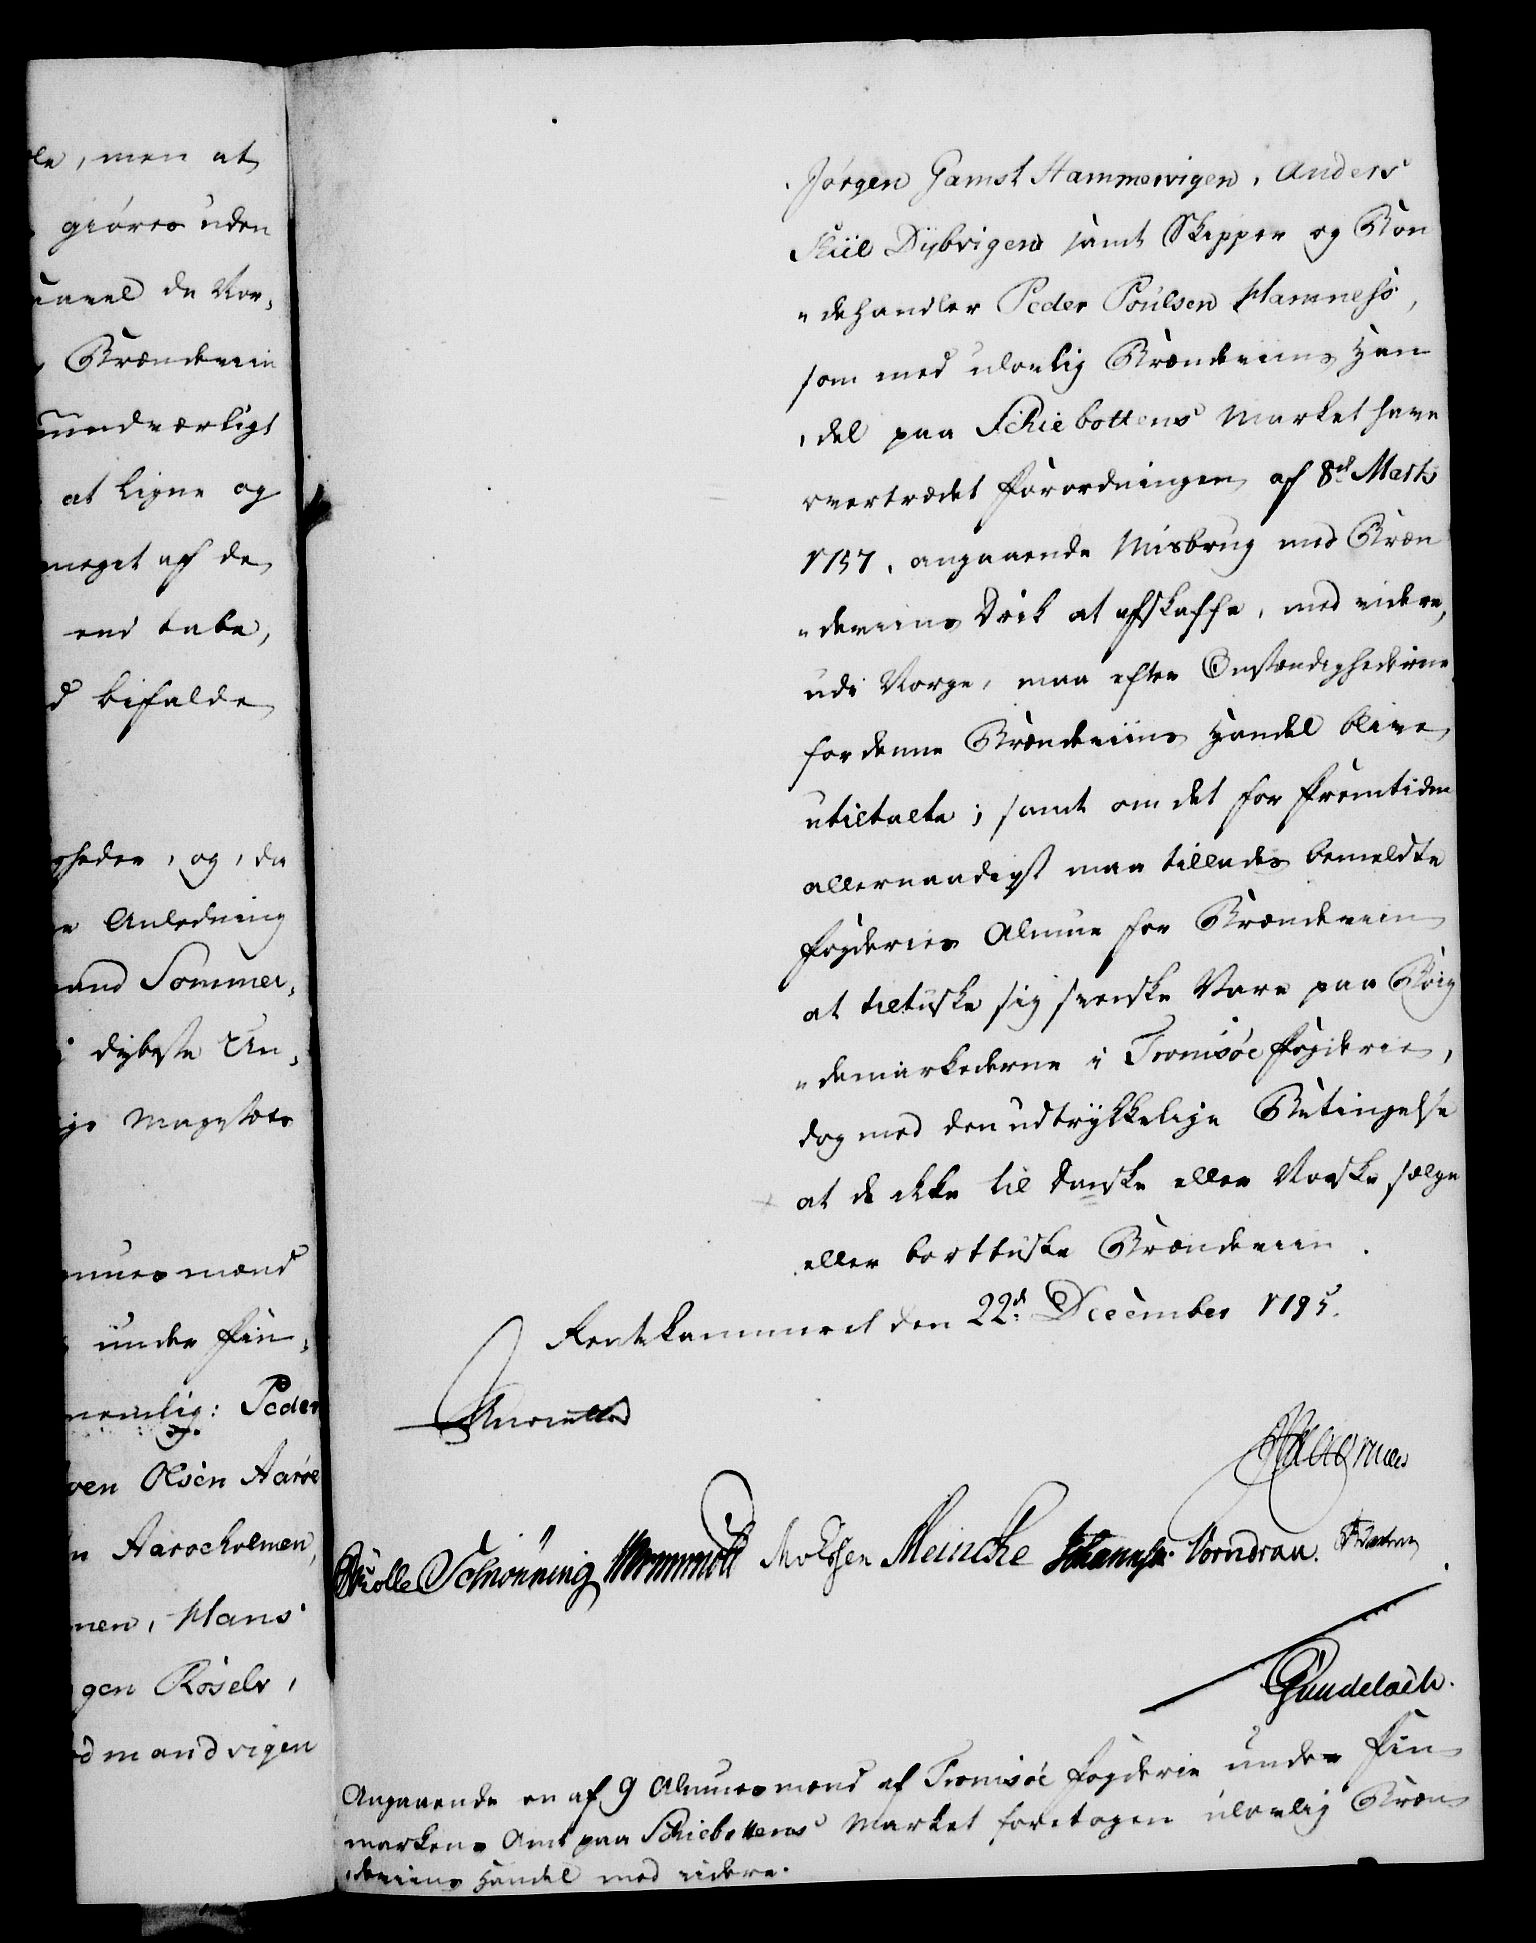 le, men at
giøres uden
saavel de Nor-
Brændeviin
uundværligt
at ligne og
meget af de
end tabe,
d bifalde
gheder, og, da
Anledning
and Sommer-
dybeste Un-
Majestæts
muesmænd
under Fin-
nemlig: Peder
ven Olsen Aarøe
n Aaroeholmen,
nen, Hans
gen Roselv,
dmandvigen
Jørgen Gamst Hammervigen, Anders
Kiil Dybvigen samt Skipper og Bon
"dehandler Peder Poulsen Hamness,
som med ulovlig Brændeviins Han
"del paa Schiebottens Market have
overtrædet Forordningen af 8d. Marts
1757, angaaende Misbrug med Bræn
"deviins Drik at afskaffe, med videre,
udi Norge, maa efter Omstændighederne
for denne Brændeviins Handel blive
utiltalte; samt om det for Fremtiden
allernaadigst maa tillades bemeldte
Fogderies Almue for Brændeviin
at tiltuske sig svenske Vare paa Bøig
"demarkederne i Tromsøe Fogderie,
dog med den udtrykkelige Betingelse
at de ikke til Danske eller Norske sælge
eller borttuske Brændeviin.
Rentekammeret den 22d. December 1795.
Schønning Wormskiold Meincke Johannsen. Vorndran.
Gundelach.
Angaaende en af 9 Almuesmænd af Tromsøe Fogderie under Fin
markens Amt paa Schiebottens Market foretagen ulovlig Bræn
"deviins Handel med videre.